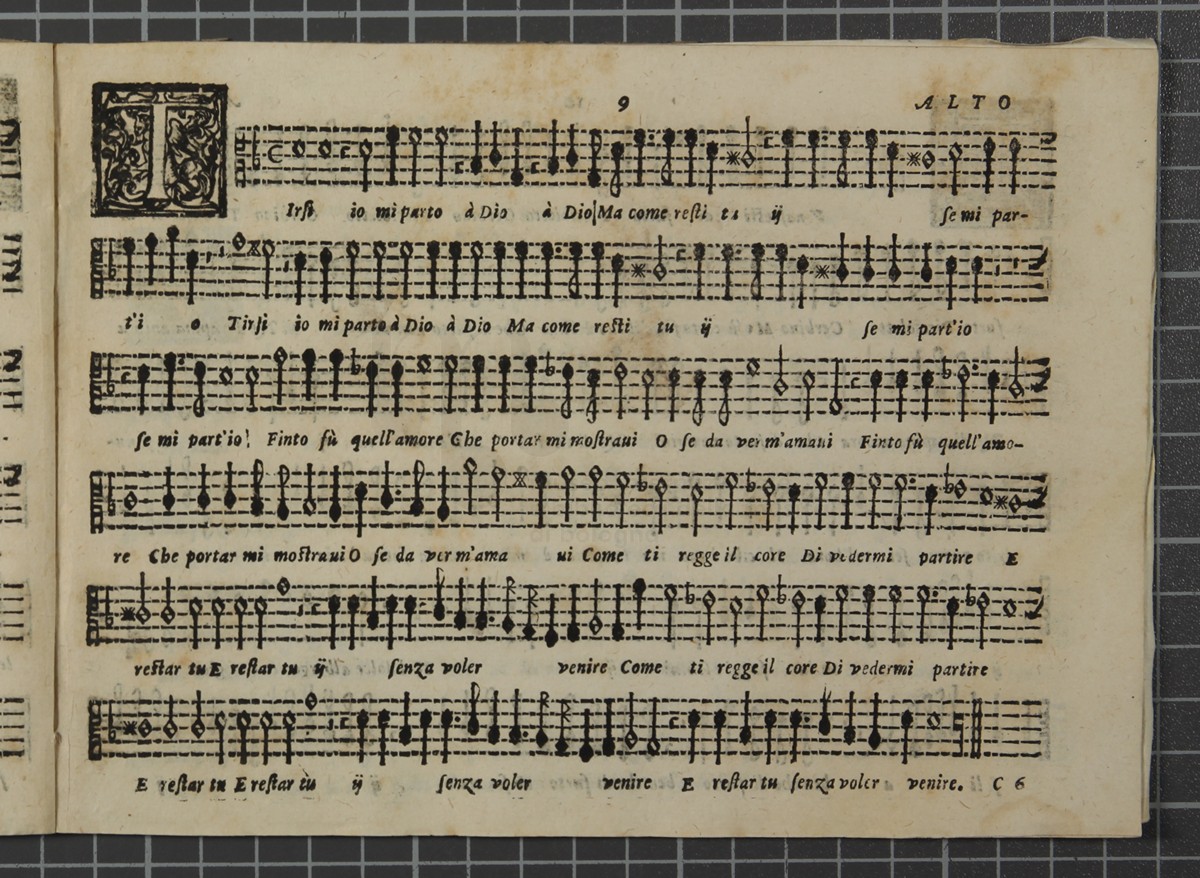 9 ALTO
TIrsi io mi parto à Dio à Dio Ma come resti tu ij se mi par-
t'i o Tirsi io mi parto à Dio à Dio Ma come resti tu ij se mi part'io
se mi part'io! Finto fù quell'amore Che portar mi mostraui O se da ver m'amaui Finto fù quell'amo-
re Che portar mi mostraui O se da ver m'ama ui Come ti regge il core Di vedermi partire E
restar tu E restar tu ij senza voler venire Come ti regge il core Di vedermi partire
E restar tu E restar tù ij senza voler venire E restar tu senza voler venire. C 6